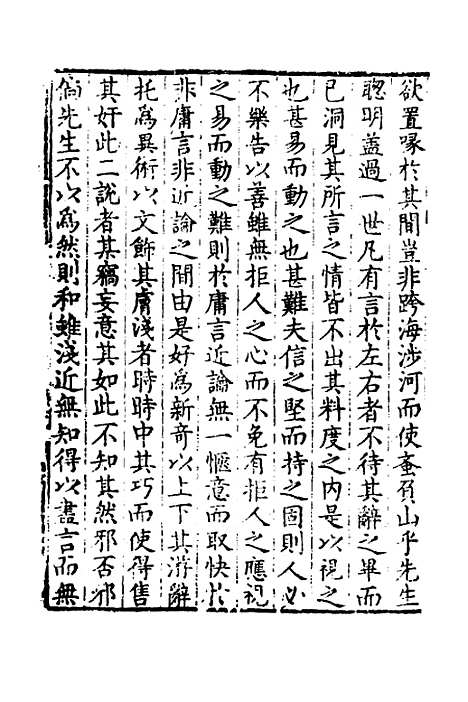 欲置喙於其間豈非跨海涉河而使蚉負山乎先生
聦明蓋過一世凡有言於左右者不待其辭之畢而
已洞見其所言之情皆不出其料度之内是以視之
也甚易而動之也甚難夫信之堅而持之固則人必
不樂告以善雖無拒人之心而不免有拒人之應視
之易而動之難則於庸言近論無一愜意而取快於
非庸言非近論之間由是好爲新奇以上下其游辭
托爲異術以文飾其膚淺者時時中其巧而使得售
其奸此二說者某竊妄意其如此不知其然邪否邪
倘先生不以爲然則和雖淺近無知得以盡言而無